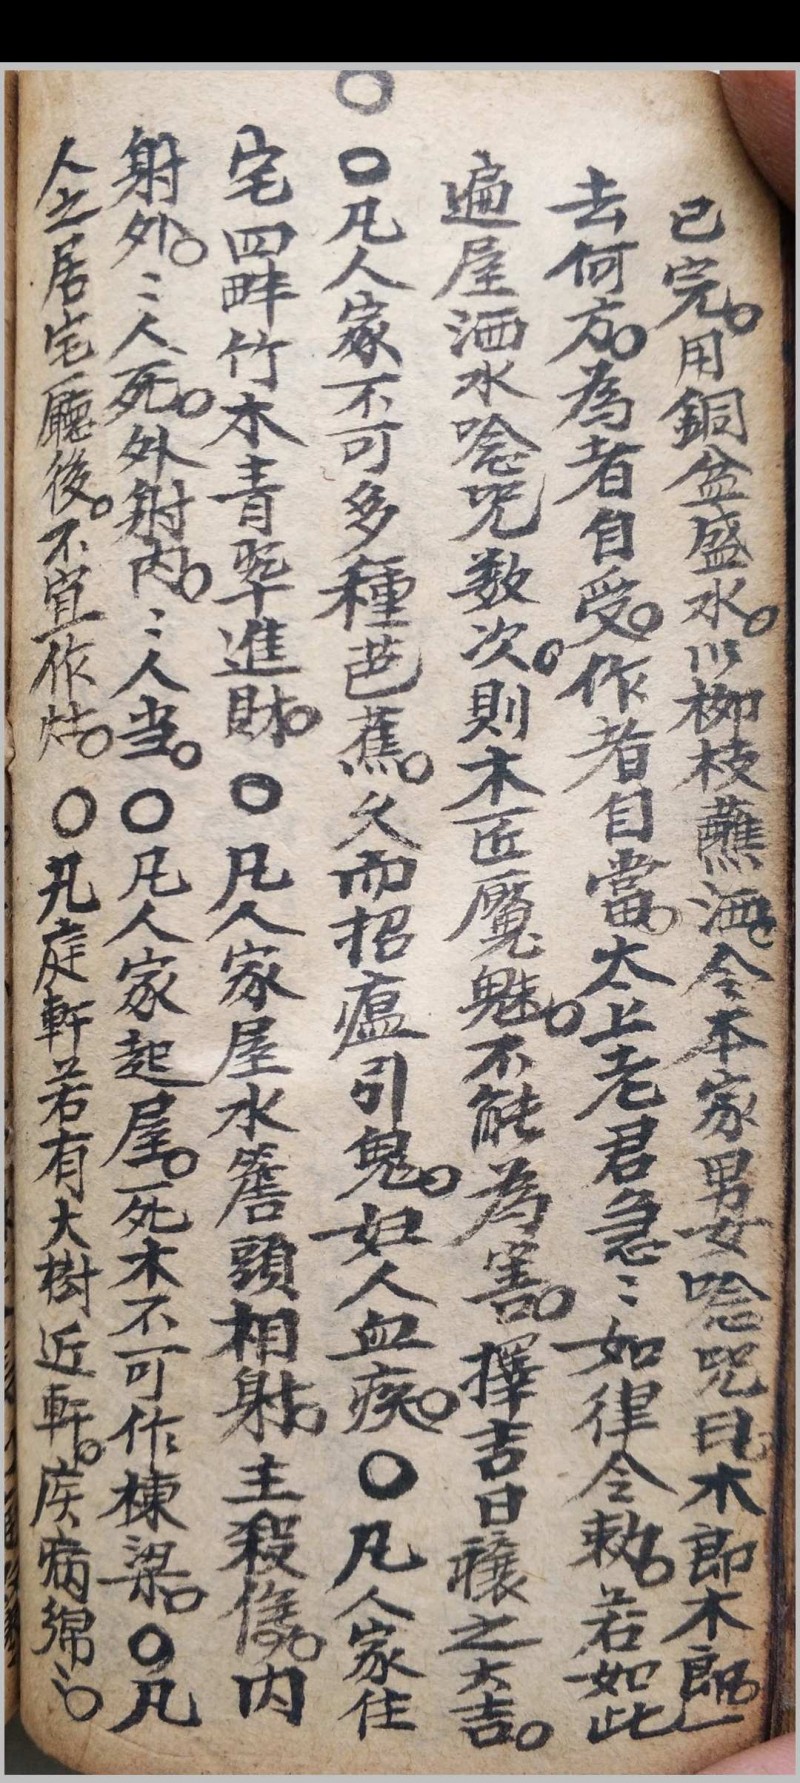 已完。用銅盆盛水。以柳枝蘸洒。令本家男女唸咒曰。木郎木郎。一
去何方。為者自受。作者自當。太上老君急〻如律令敕。若如此
遍屋洒水唸咒数次。則木匠魘魅。不能為害。擇吉日禳之大吉。
〇凡人家不可多種芭蕉。久而招瘟引鬼。妇人血疾。〇凡人家住
宅四畔竹木青翠進財。〇凡人家屋水簷頭相射。主殺傷。内
射外。〻人死。外射内。〻人当。〇凡人家起屋。死木不可作棟梁。〇凡
人之居宅廳後。不宜作灶。〇凡庭軒若有大樹近軒。疾病綿〻。